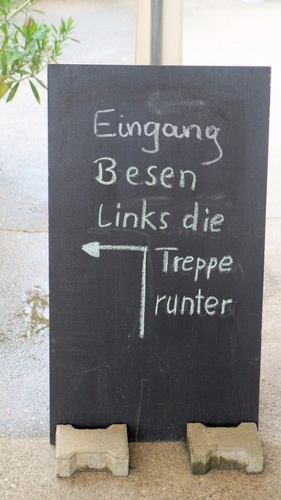 Eingang
Besen
Links die
Treppe
runter